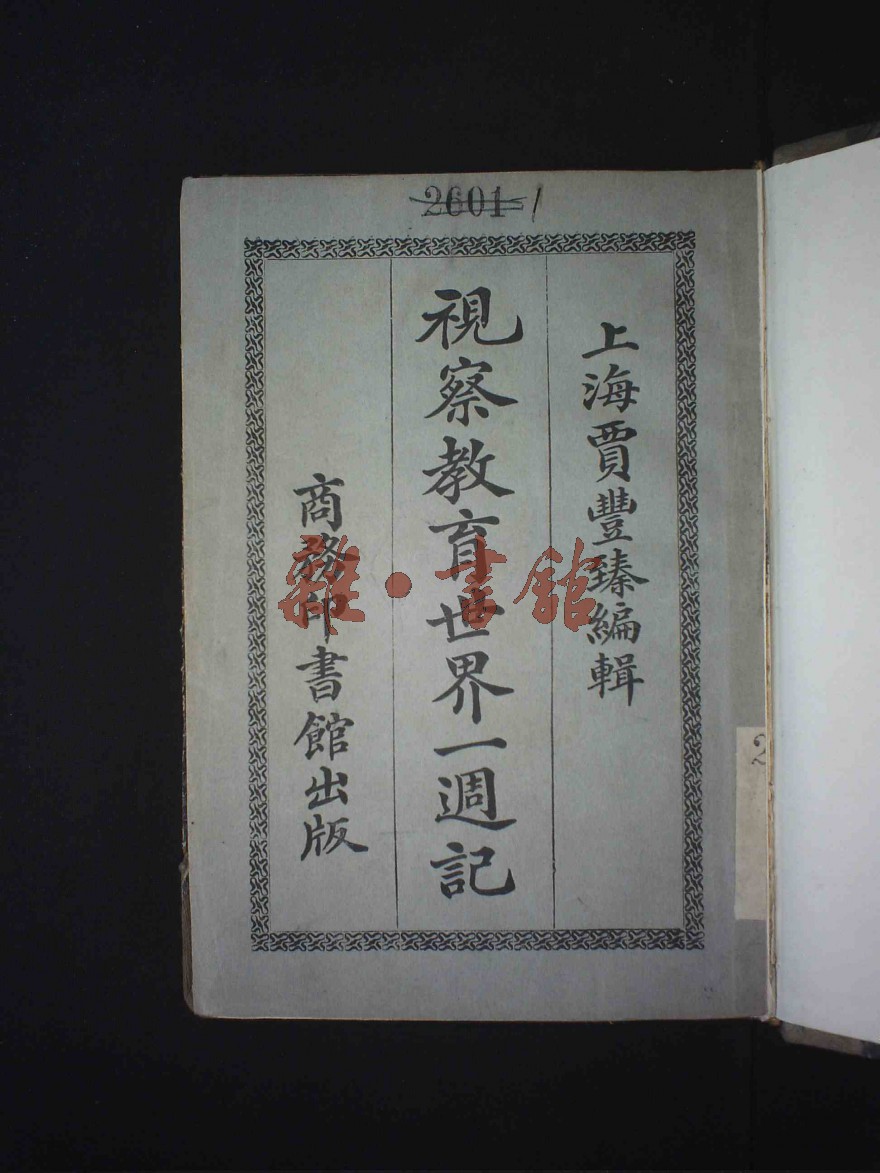 2601 1
上海賈豐臻編輯
視察教育世界一週記
商務印書館出版
雜·書館
2